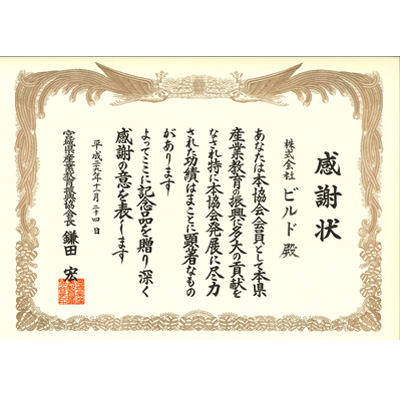 感謝状
株式会社 ビルド 殿
あなたは本協会会員として本県
産業教育の振興に多大の貢献を
なされ特に本協会発展に尽力
された功績はまことに顕著なもの
があります
よってここに記念品を贈り深く
感謝の意を表します
平成二十六年十一月二十四日
宮城県産業教育振興協会長 鎌田 宏